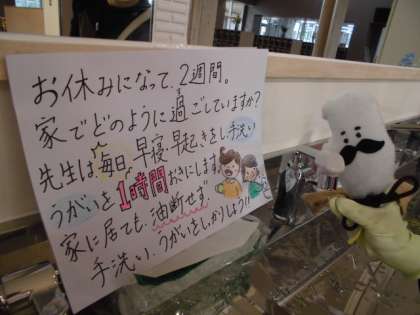 お休みになって、2週間。
家でどのように過ごしていますか?
先生は毎日早寝早起きをし、手洗い
うがいを1時間おきにします。
家に居ても、油断せず、
手洗い、うがいをしっかりしよう!!